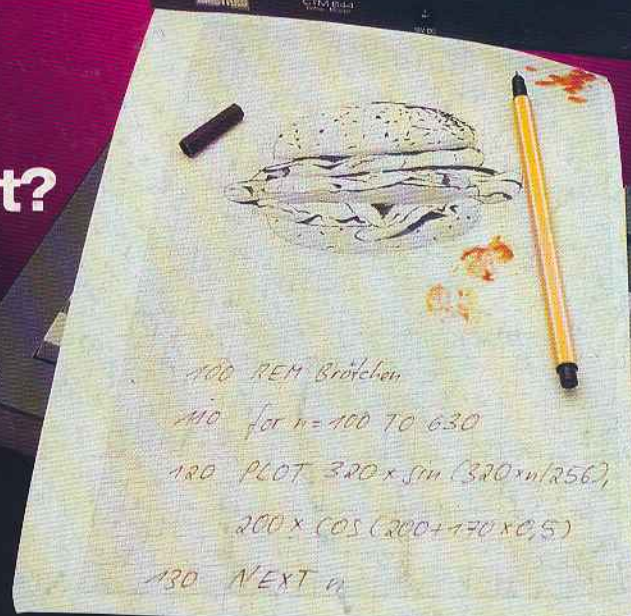 CTM 644
t?
100 REM Brötchen
110 for n=100 TO 630
120 PLOT 320 x sin (320xn/256),
200 x COS (200+170x0,5)
130 NEXT n